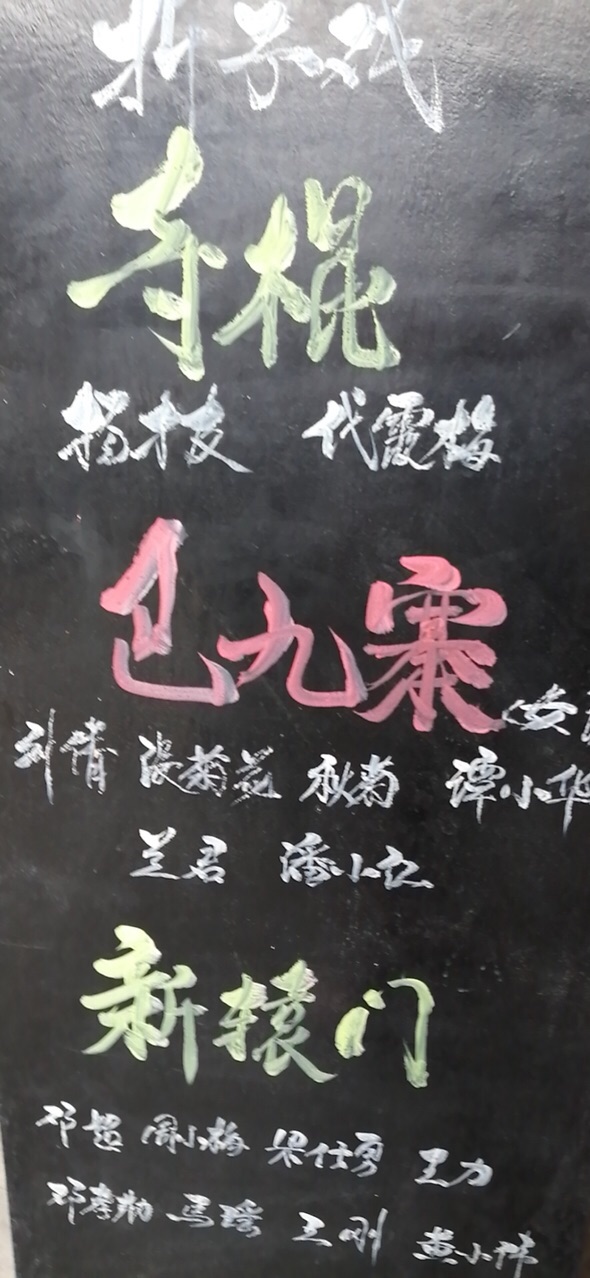 折子戏
寺棍
杨枝 代霞梅
包九寨
安
刘倩 张菊花 秋菊 谭小华
兰君 潘小红
新辕门
邓超 周小梅 梁仕勇 王力
邓孝勤 马瑶 王刚 黄小伟